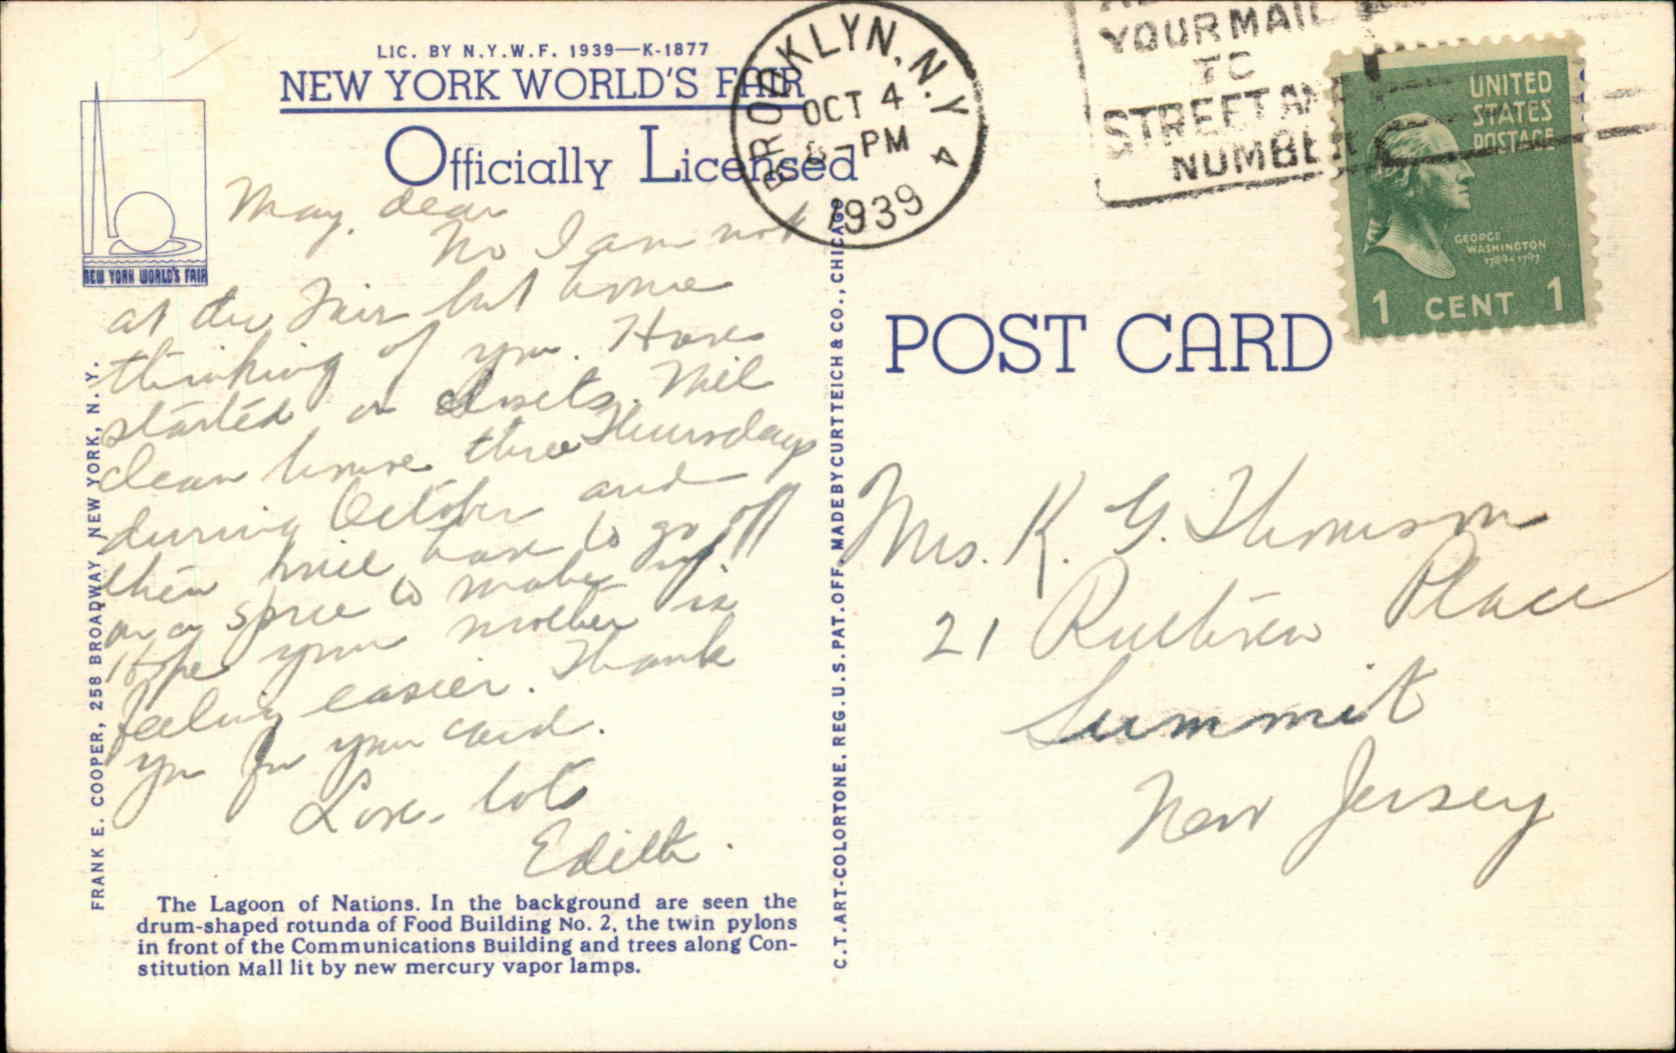 LIC. BY N.Y.W.F. 1939—K-1877
NEW YORK WORLD'S FAIR
Officially Licensed
NEW YORK WORLD'S FAIR
May, dear
No I am not
at the Fair but home
thinking of you. Have
started on closets. Will
clean house three Thursdays
during October and
then will have to go off
on a spree to make up.
Hope your mother is
feeling easier. Thank
you for your card.
Love, lots
Edith.
The Lagoon of Nations. In the background are seen the
drum-shaped rotunda of Food Building No. 2, the twin pylons
in front of the Communications Building and trees along Con-
stitution Mall lit by new mercury vapor lamps.
FRANK E. COOPER, 258 BROADWAY, NEW YORK, N. Y.
C.T. ART-COLORTONE, REG. U.S. PAT. OFF. MADE BY CURT TEICH & CO., CHICAGO
BROOKLYN, N.Y. 4
OCT 4
PM
1939
YOUR MAIL
TO
STREET AND
NUMBER
UNITED
STATES
POSTAGE
GEORGE
WASHINGTON
1789-1797
1 CENT 1
POST CARD
Mrs. K. G. Thomson
21 Ruthven Place
Summit
New Jersey